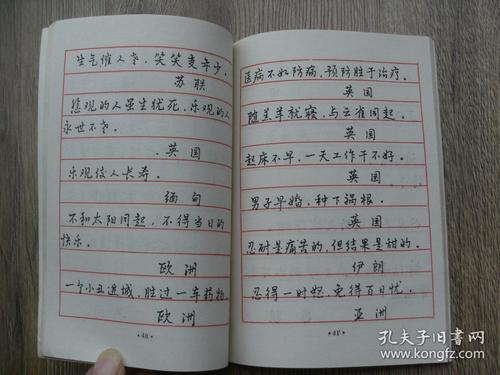 生气催人老，笑笑变年少。
苏联
悲观的人虽生犹死，乐观的人
永世不老。
英国
乐观使人长寿。
缅甸
不和太阳同起，不得当日的
快乐。
欧洲
一个小丑进城，胜过一车药物。
欧洲
·40·
医病不如防病，预防胜于治疗。
英国
随羔羊就寝，与云雀同起。
英国
起床不早，一天工作干不好。
英国
男子早婚，种下祸根。
英国
忍耐是痛苦的，但结果是甜的。
伊朗
忍得一时怒，免得百日忧。
亚洲
·41·
孔夫子旧书网
www.kongfz.com